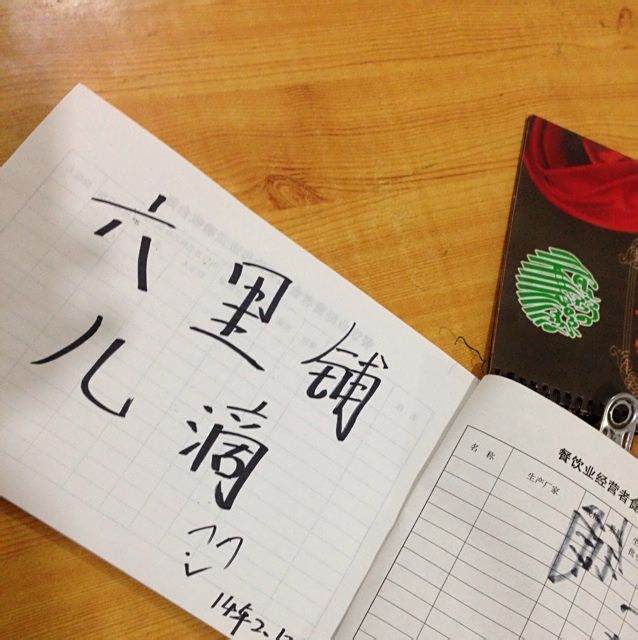 六里铺
儿滴
14年2.1
餐饮业经营者食
名 称 生产厂家